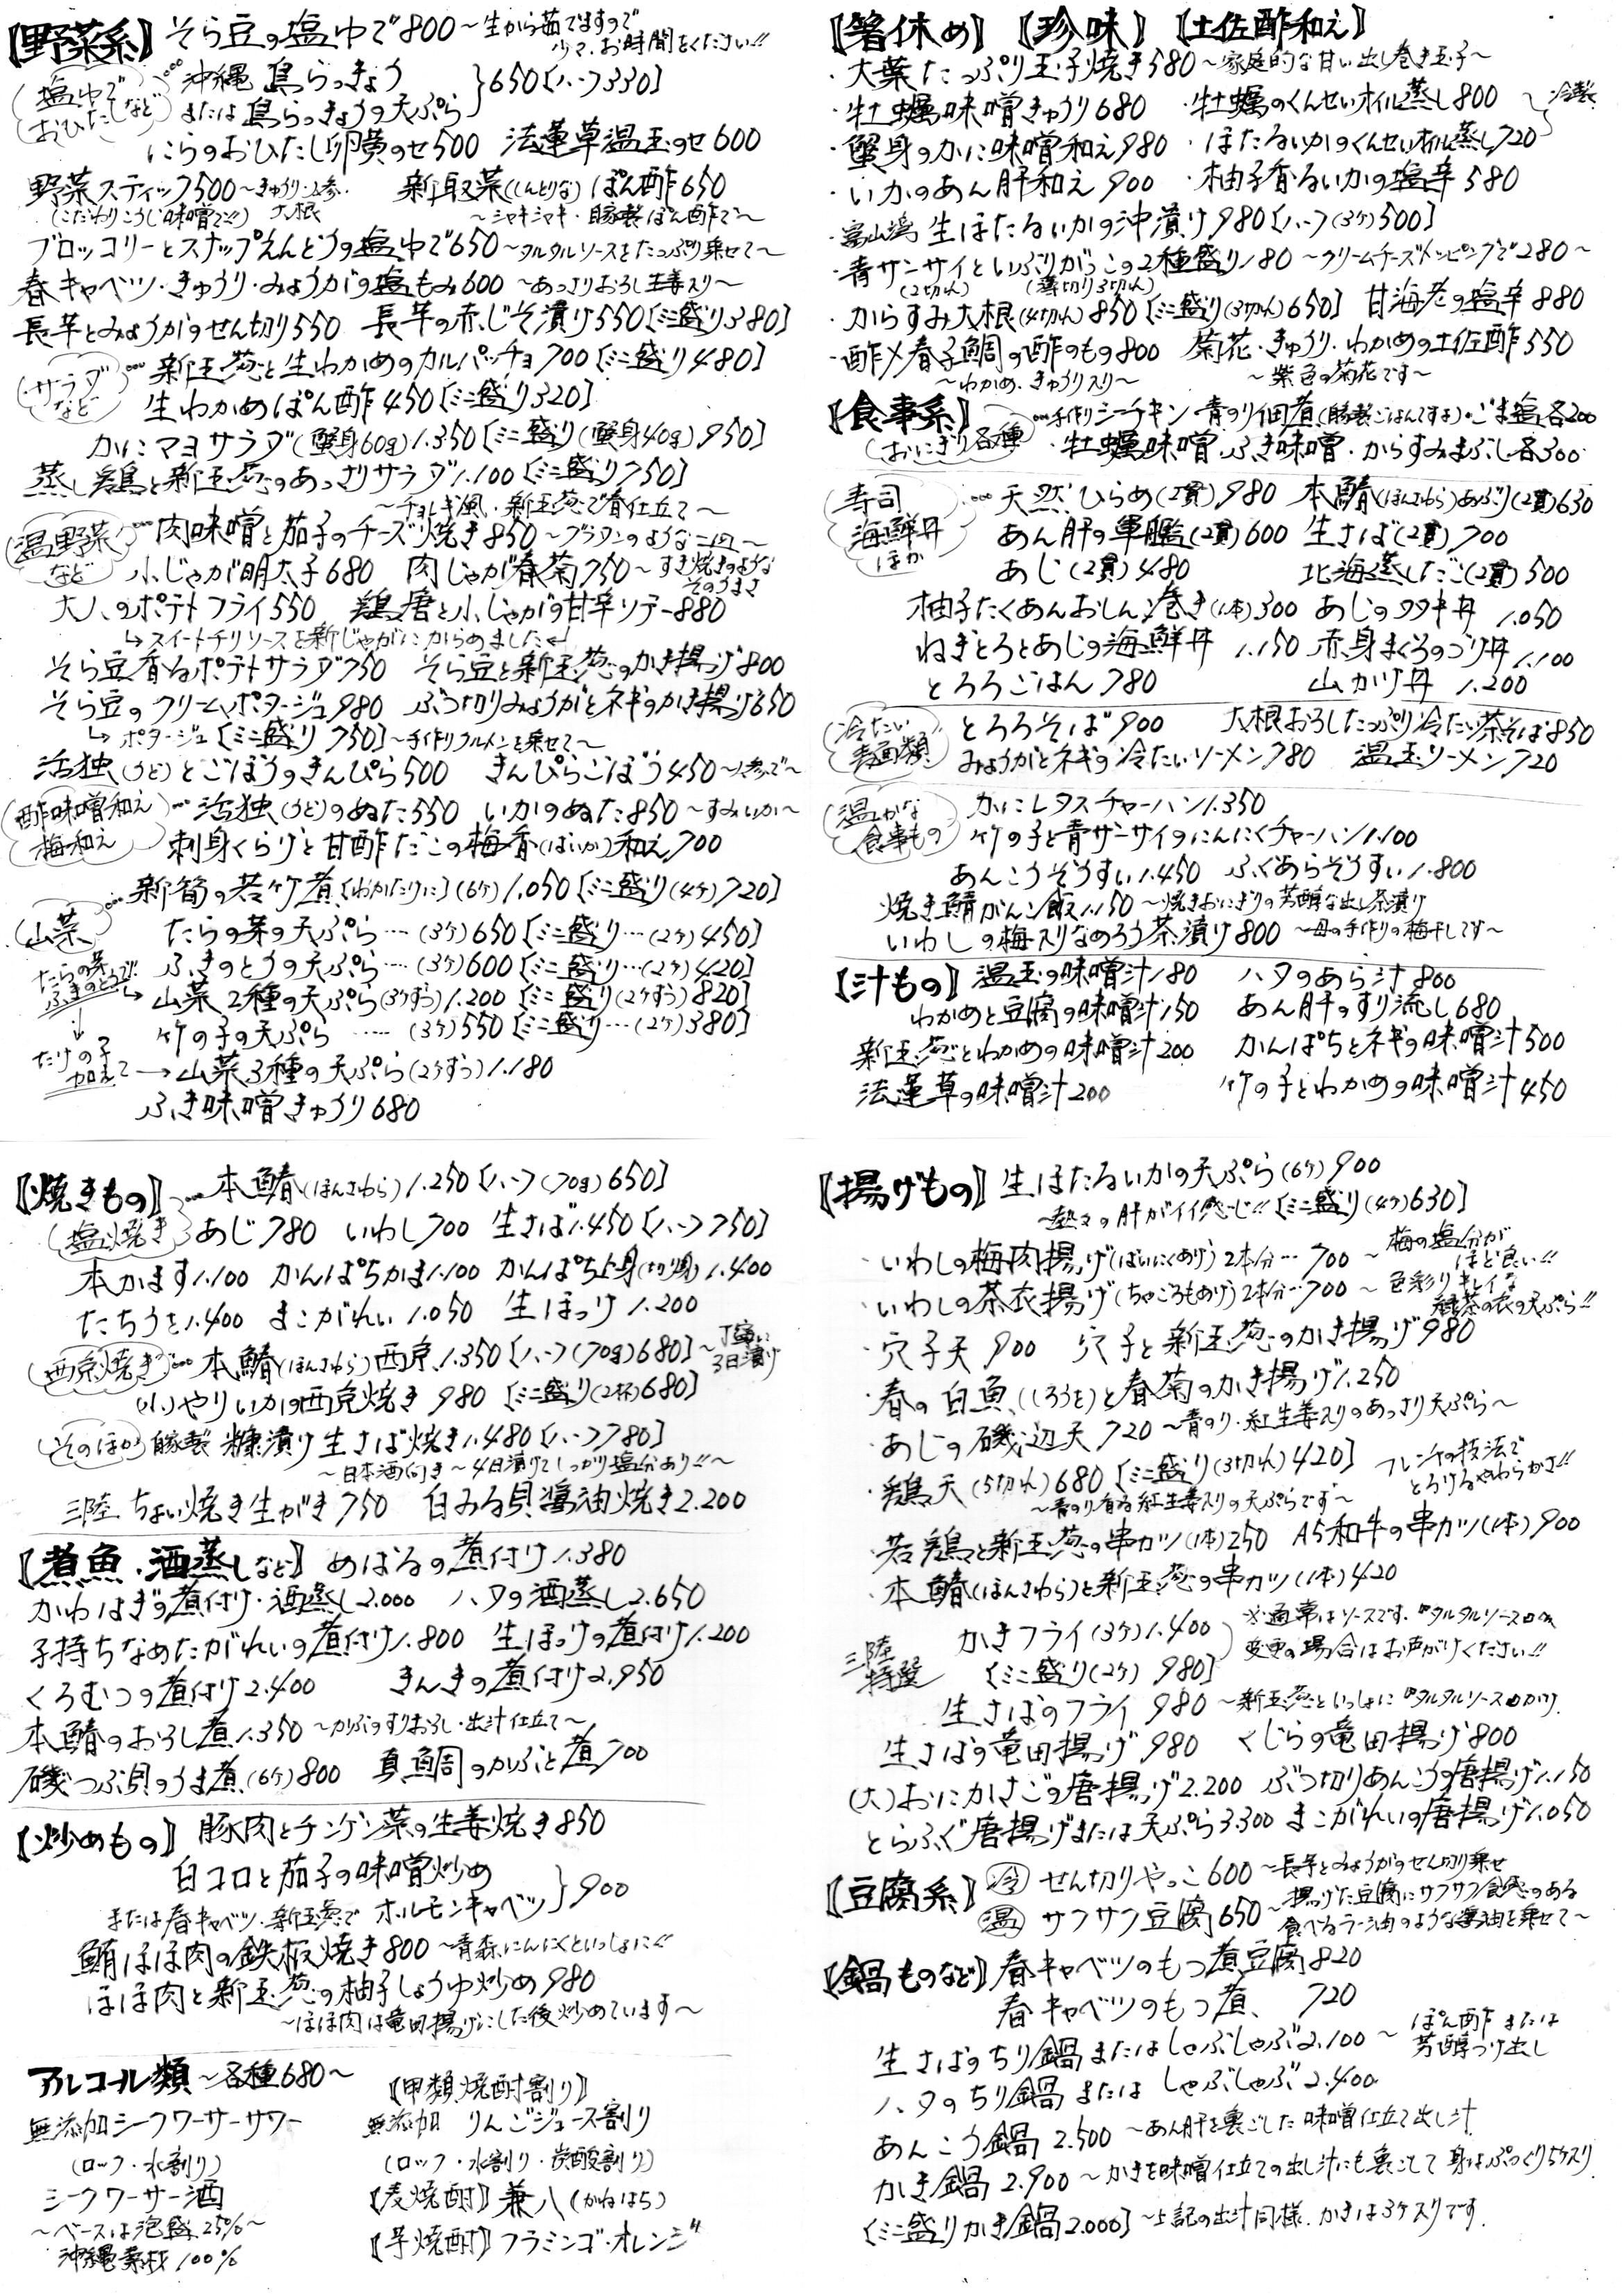 【野菜系】そら豆の塩ゆで800～生から茹でますので
少々、お時間をください!!
塩ゆで
おひたしなど
…沖縄 島らっきょう
または島らっきょうの天ぷら
650【ハーフ330】
にらのおひたし卵黄のせ500 法蓮草温玉のせ600
野菜スティック500～きゅうり・人参・大根
(こだわりこうじ味噌で!!)
新取菜(しんとりな)ぽん酢650
～シャキシャキ・自家製ぽん酢で～
ブロッコリーとスナップえんどうの塩ゆで650～タルタルソースをたっぷり乗せて～
春キャベツ・きゅうり・みょうがの塩もみ600～あっさりおろし生姜入り～
長芋とみょうがのせん切り550 長芋の赤じそ漬け550【ミニ盛り380】
サラダなど
…新玉葱と生わかめのカルパッチョ700【ミニ盛り480】
生わかめぽん酢450【ミニ盛り320】
かにマヨサラダ(蟹身60g)1.350【ミニ盛り(蟹身40g)950】
蒸し鶏と新玉葱のあっさりサラダ1.100【ミニ盛り750】
～チョレギ風・新玉葱で春仕立て～
温野菜など
…肉味噌と茄子のチーズ焼き850～グラタンのような一皿～
小じゃが明太子680 肉じゃが春菊750～すき焼きのような
そのうまさ
大人のポテトフライ550 鶏唐と小じゃがの甘辛ソテー880
↳スイートチリソースを新じゃがにからめました↵
そら豆香るポテトサラダ750 そら豆と新玉葱のかき揚げ800
そら豆のクリームポタージュ980 ぶつ切りみょうがとネギのかき揚げ650
↳ポタージュ【ミニ盛り750】～手作りクルトンを乗せて～
活独(うど)とごぼうのきんぴら500 きんぴらごぼう450～人参で～
酢味噌和え
梅和え
…活独(うど)のぬた550 いかのぬた850～すみいか～
刺身くらげと甘酢だこの梅香(ばいか)和え700
山菜
…新筍の若竹煮【わかたけに】(6ケ)1.050【ミニ盛り(4ケ)720】
たらの芽の天ぷら…(3ケ)650【ミニ盛り…(2ケ)450】
ふきのとうの天ぷら…(3ケ)600【ミニ盛り…(2ケ)420】
たらの芽
ふきのとうで
→山菜2種の天ぷら(3ケずつ)1.200【ミニ盛り(2ケずつ)820】
竹の子の天ぷら……(3ケ)550【ミニ盛り…(2ケ)380】
↓
たけの子
加えて→山菜3種の天ぷら(2ケずつ)1.180
ふき味噌きゅうり680
【箸休め】【珍味】【土佐酢和え】
・大葉たっぷり玉子焼き580～家庭的な甘い出し巻き玉子～
・牡蠣味噌きゅうり680 ・牡蠣のくんせいオイル蒸し800
・蟹身のかに味噌和え980 ・ほたるいかのくんせいオイル蒸し720
～冷製
・いかのあん肝和え900 ・柚子香るいかの塩辛580
・富山湾 生ほたるいかの沖漬け980【ハーフ(3ケ)500】
・青サンサイといぶりがっこの2種盛り180～クリームチーズトッピングで280～
(2切れ) (薄切り3切れ)
・からすみ大根(4切れ)850【ミニ盛り(3切れ)650】 甘海老の塩辛880
・酢〆春子鯛の酢のもの800 菊花・きゅうり・わかめの土佐酢550
～わかめ、きゅうり入り～ ～紫色の菊花です～
【食事系】
おにぎり各種
…手作りシーチキン・青のり佃煮(自家製ごはんですよ)・ごま塩各200
・牡蠣味噌・ふき味噌・からすみまぶし各300
寿司
海鮮丼
ほか
…天然ひらめ(2貫)980 本鰆(ほんさわら)あぶり(2貫)630
あん肝の軍艦(2貫)600 生さば(2貫)700
あじ(2貫)480 北海蒸しだこ(2貫)500
柚子たくあんおしんこ巻き(1本)300 あじのタタキ丼 1.050
ねぎとろとあじの海鮮丼 1.150 赤身まぐろのづけ丼1.100
とろろごはん780 山かけ丼 1.200
冷たい
麺類
とろろそば900 大根おろしたっぷり冷たい茶そば850
みょうがとネギの冷たいソーメン780 温玉ソーメン720
温かな
食事もの
かにレタスチャーハン1.350
竹の子と青サンサイのにんにくチャーハン1.100
あんこうぞうすい1.450 ふぐあらぞうすい1.800
焼き鯖がんこ飯1.150～焼きおにぎりの芳醇な出し茶漬け
いわしの梅入りなめろう茶漬け800～母の手作りの梅干しです～
【汁もの】温玉の味噌汁180 ハタのあら汁800
わかめと豆腐の味噌汁150 あん肝のすり流し680
新玉葱とわかめの味噌汁200 かんぱちとネギの味噌汁500
法蓮草の味噌汁200 竹の子とわかめの味噌汁450
【焼きもの】…本鰆(ほんさわら)1.250【ハーフ(70g)650】
塩焼き
あじ780 いわし700 生さば1.450【ハーフ750】
本かます1.100 かんぱちかま1.100 かんぱち上身(切身)1.400
たちうお1.400 まこがれい1.050 生ほっけ1.200
西京焼き
…本鰆(ほんさわら)西京1.350【ハーフ(70g)680】～丁寧に
3日漬け
(小)やりいかの西京焼き980【ミニ盛り(2杯)680】
そのほか
自家製 糠漬け生さば焼き1.480【ハーフ780】
～日本酒向き～4日漬けてしっかり塩分あり!!～
三陸 ちょい焼き生がき750 白みる貝醤油焼き2.200
【煮魚・酒蒸しなど】めばるの煮付け1.380
かわはぎの煮付け・酒蒸し2.000 ハタの酒蒸し2.650
子持ちなめたがれいの煮付け1.800 生ほっけの煮付け1.200
くろむつの煮付け2.400 きんきの煮付け2.950
本鰆のおろし煮1.350～かぶのすりおろし・出汁仕立て～
磯つぶ貝のうま煮(6ケ)800 真鯛のかぶと煮700
【炒めもの】豚肉とチンゲン菜の生姜焼き850
白コロと茄子の味噌炒め
または春キャベツ・新玉葱で ホルモンキャベツ
900
鮪ほほ肉の鉄板焼き800～青森にんにくといっしょに!!
ほほ肉と新玉葱の柚子しょうゆ炒め980
～ほほ肉は竜田揚げにした後炒めています～
アルコール類～各種680～
無添加シークワーサーサワー
(ロック・水割り)
シークワーサー酒
～ベースは泡盛25%～
沖縄素材100%
【甲類焼酎割り】
無添加 りんごジュース割り
(ロック・水割り・炭酸割り)
【麦焼酎】兼八(かねはち)
【芋焼酎】フラミンゴ・オレンジ
【揚げもの】生ほたるいかの天ぷら(6ケ)900
～熱々の肝がイイ感じ!!【ミニ盛り(4ケ)630】
・いわしの梅肉揚げ(ばいにくあげ)2本分…700～梅の塩分が
ほど良い!!
・いわしの茶衣揚げ(ちゃころもあげ)2本分…700～色彩りキレイな
緑茶の衣の天ぷら!!
・穴子天900 穴子と新玉葱のかき揚げ980
・春の白魚(しろうお)と春菊のかき揚げ1.250
・あじの磯辺天720～青のり・紅生姜入りのあっさり天ぷら～
・鶏天(5切れ)680【ミニ盛り(3切れ)420】 フレンチの技法で
とろけるやわらかさ!!
～青のり香る紅生姜入りの天ぷらです～
・若鶏と新玉葱の串カツ(1本)250 A5和牛の串カツ(1本)900
・本鰆(ほんさわら)と新玉葱の串カツ(1本)420
三陸
特選
かきフライ(3ケ)1.400
【ミニ盛り(2ケ)980】
※通常はソースです。『タルタルソース』へ
変更の場合はお声がけください!!
生さばのフライ980～新玉葱といっしょに『タルタルソース』かけ
生さばの竜田揚げ980 くじらの竜田揚げ800
(大)おにかさごの唐揚げ2.200 ぶつ切りあんこう唐揚げ1.150
とらふぐ唐揚げまたは天ぷら3.300 まこがれいの唐揚げ1.050
【豆腐系】冷 せん切りやっこ600～長芋とみょうがのせん切り乗せ
温 サクサク豆腐650～揚げた豆腐にサクサク食感のある
食べるラー油のような醤油を乗せて～
【鍋ものなど】春キャベツのもつ煮豆腐820
春キャベツのもつ煮 720
生さばのちり鍋またはしゃぶしゃぶ2.100～ぽん酢または
芳醇つけ出し
ハタのちり鍋または しゃぶしゃぶ2.400
あんこう鍋2.500～あん肝を裏ごした味噌仕立て出し汁
かき鍋2.900～かきを味噌仕立ての出し汁にも裏ごして身はぷっくり5ケ入り
【ミニ盛りかき鍋2.000】～上記の出汁同様、かきは3ケ入りです。